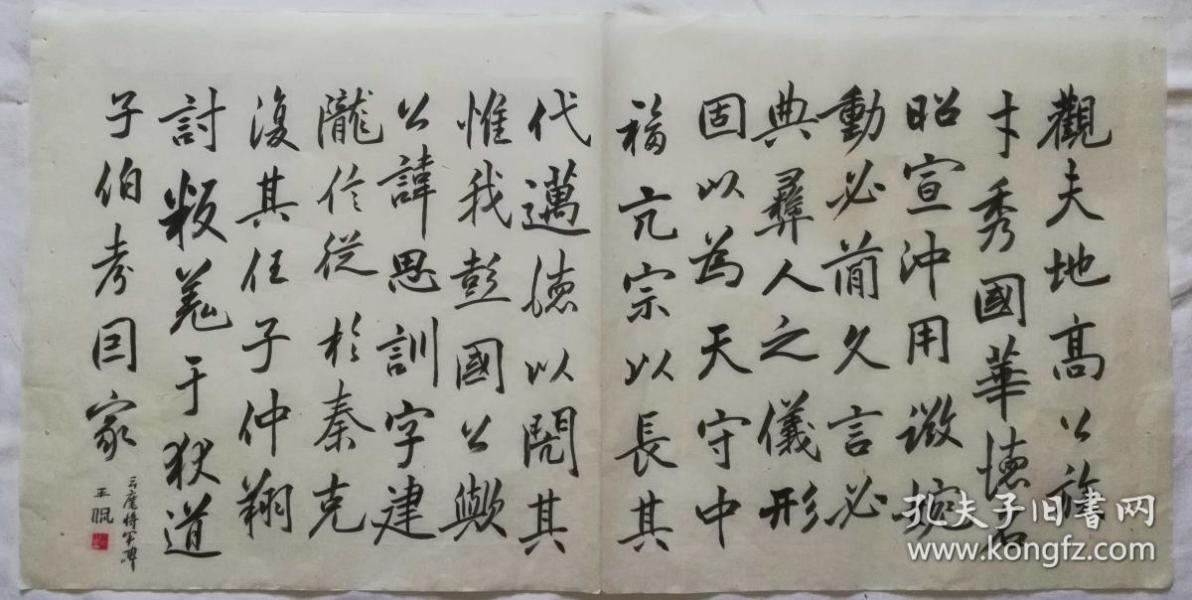 觀夫地高公族
才秀國華德名
昭宣沖用微婉
動必簡久言必
典彝人之儀形
固以為天守中
福亢宗以長其
代邁德以閱其
惟我彭國公歟
公諱思訓字建
隴信從於秦克
復其任子仲翔
討叛羌于狄道
子伯考因家
云麾將軍碑
王侃
孔夫子旧书网
www.kongfz.com